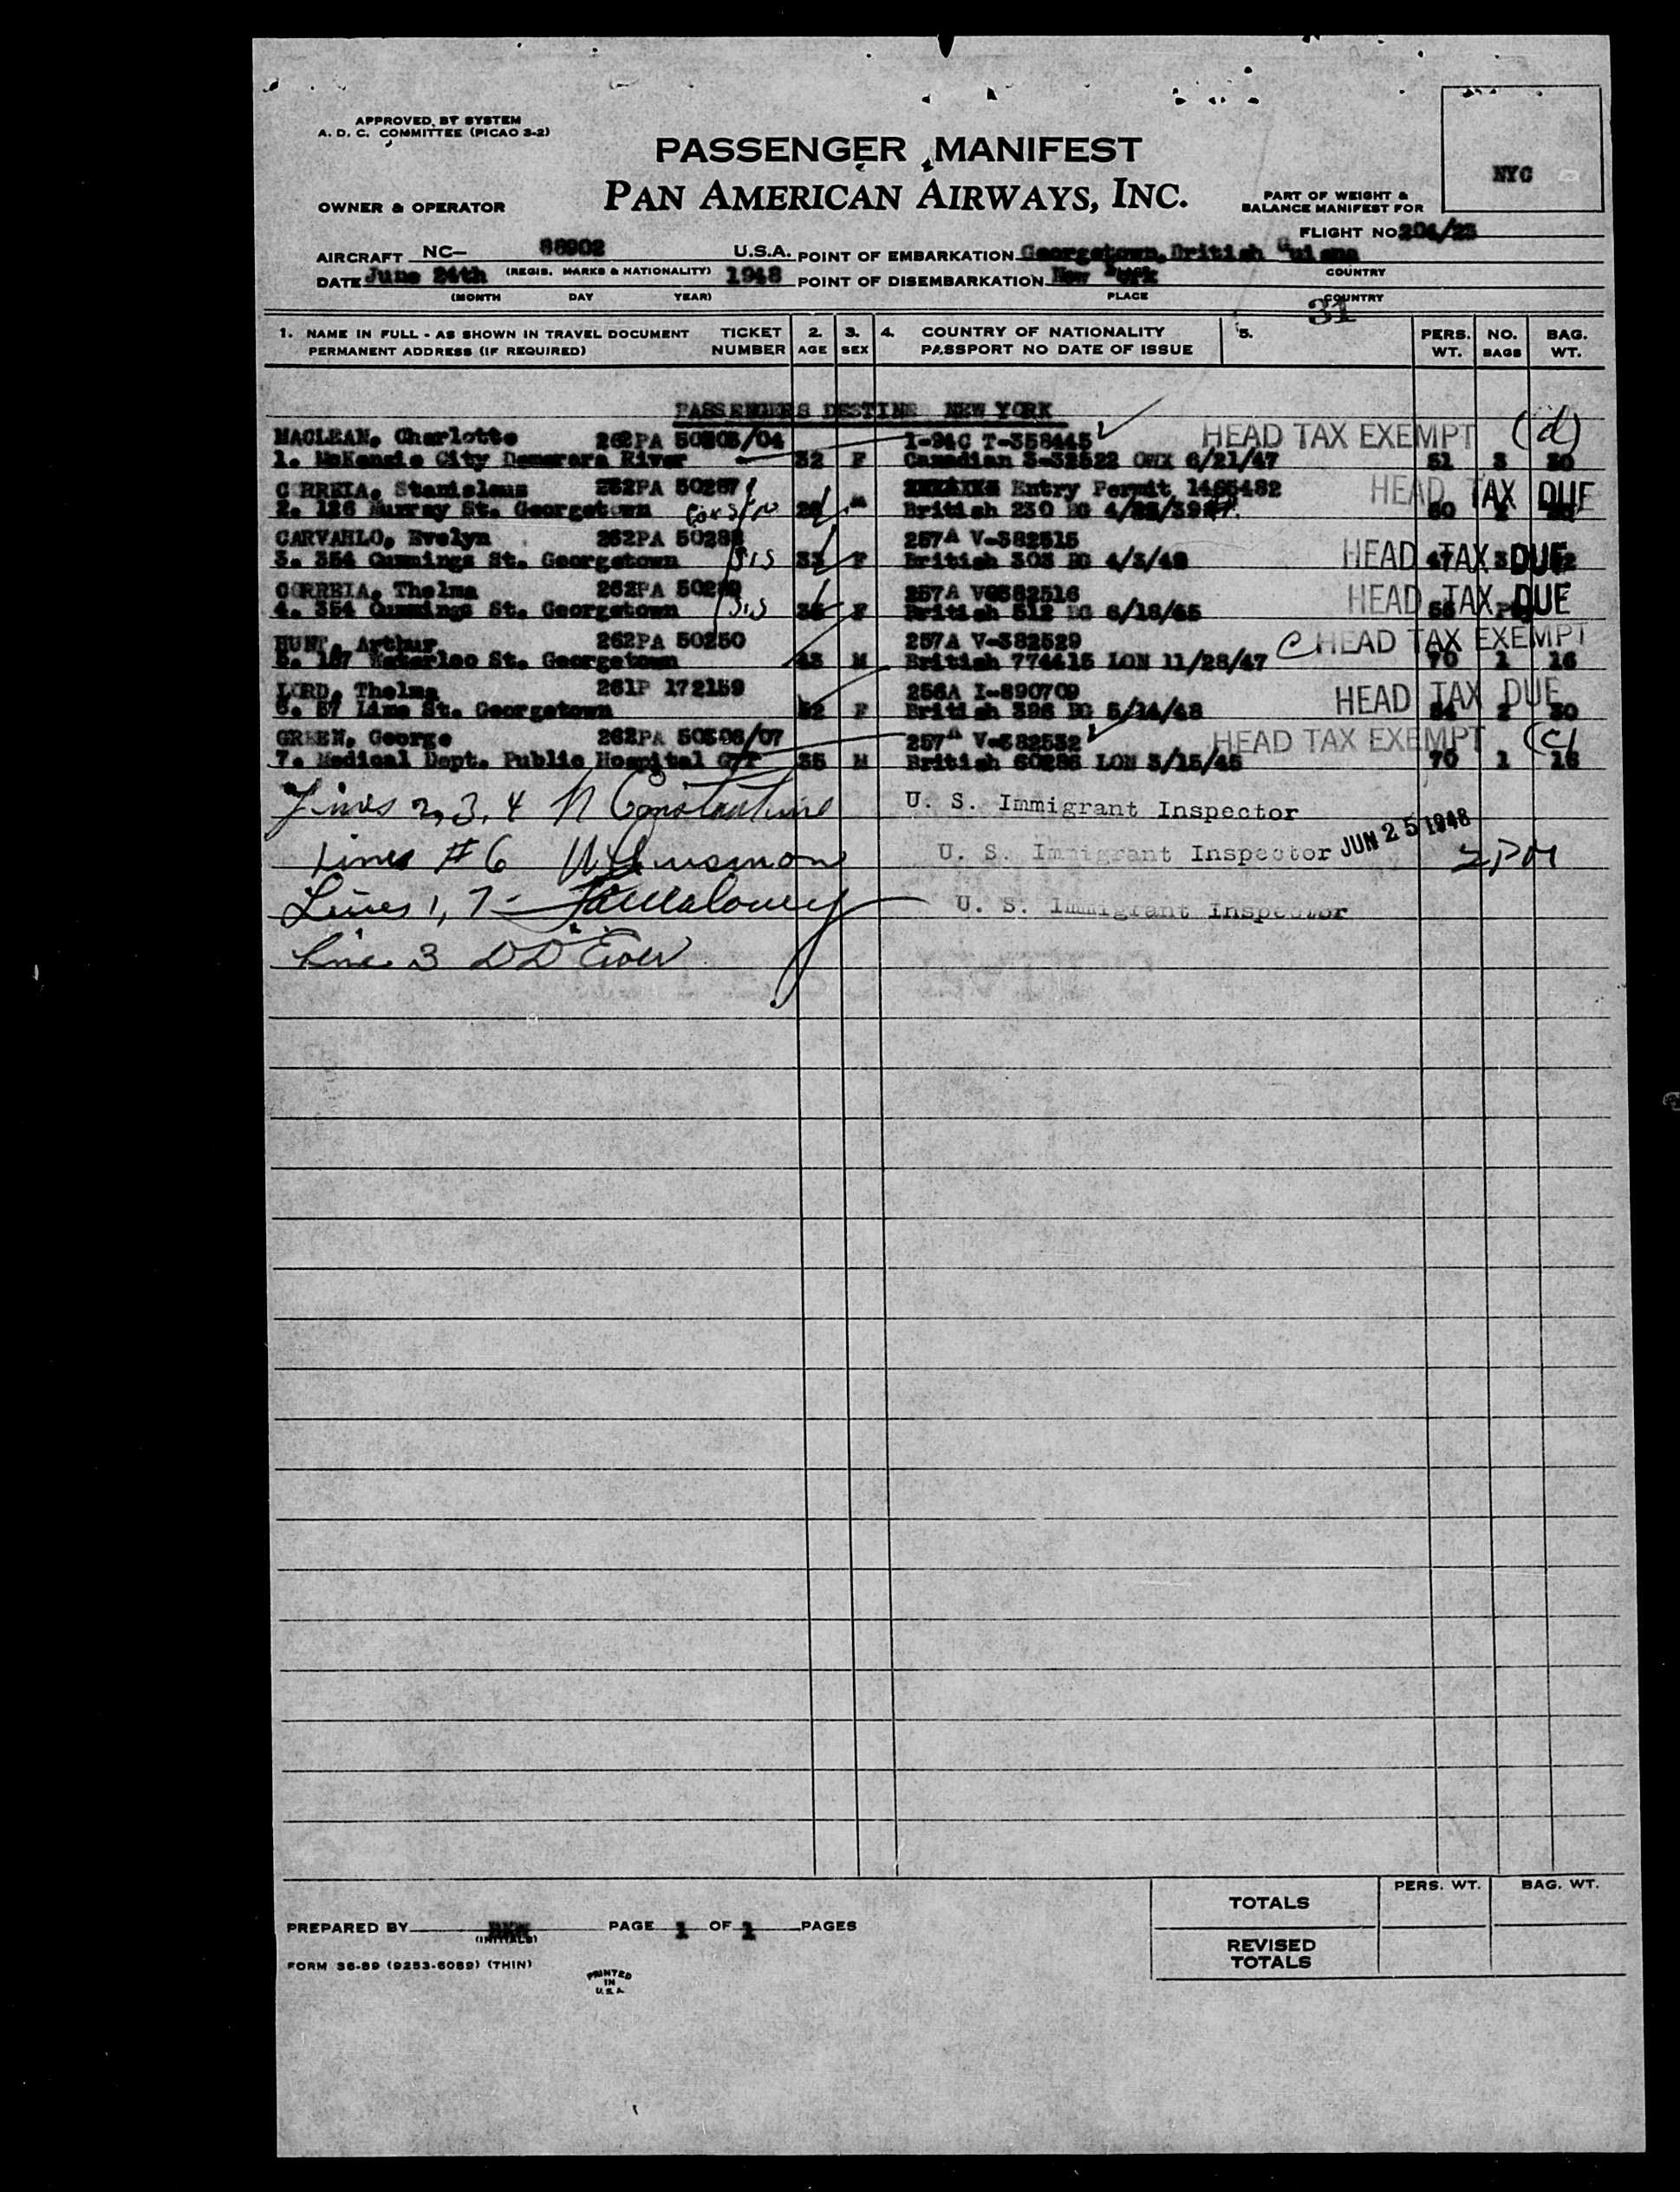 APPROVED BY SYSTEM
A. D. C. COMMITTEE (PICAO 3-2)
PASSENGER MANIFEST
PAN AMERICAN AIRWAYS, INC.
NYC
OWNER & OPERATOR
PART OF WEIGHT &
BALANCE MANIFEST FOR
FLIGHT NO 204/23
AIRCRAFT NC- 88902 U.S.A. POINT OF EMBARKATION Georgetown, British Guiana
(REGIS. MARKS & NATIONALITY) COUNTRY
DATE June 24th 1948 POINT OF DISEMBARKATION New York
(MONTH DAY YEAR) PLACE COUNTRY
31
1. NAME IN FULL - AS SHOWN IN TRAVEL DOCUMENT TICKET 2. 3. 4. COUNTRY OF NATIONALITY 5. PERS. NO. BAG.
PERMANENT ADDRESS (IF REQUIRED) NUMBER AGE SEX PASSPORT NO DATE OF ISSUE WT. BAGS WT.
PASSENGERS DESTINE NEW YORK
MACLEAN, Charlotte 262PA /04 I-94C T-358445 HEAD TAX EXEMPT (d)
1. McKenzie City Demerara River 32 F Canadian 3-32522 6/21/47 51 3 30
CORREIA, Stanislaus 262PA 50287 Entry Permit 1465482 HEAD TAX DUE
2. 126 Murray St. Georgetown M British 230 BG
CARVAHLO, Evelyn 262PA 257A V-382515
3. 354 Cummings St. Georgetown Sis F British 303 BG 4/3/48 HEAD TAX DUE
CORREIA, Thelma 262PA 257A V0382516 HEAD TAX DUE
4. 354 Cummings St. Georgetown Sis F British 512 BG
HUNT, Arthur 262PA 50250 257A V-382529 C HEAD TAX EXEMPT
5. 187 Waterloo St. Georgetown M British 774415 LON 11/28/47 70 1 16
LORD, Thelma 261P 172159 256A I-890709 HEAD TAX DUE
6. 57 Lime St. Georgetown 52 F British 396 BG 5/14/48 2 30
GREEN, George 262PA /07 257A V-382532 HEAD TAX EXEMPT (c)
7. Medical Dept. Public Hospital G/T 35 M British 60286 LON 3/15/45 70 1 16
Lines 2, 3, 4 N Constantine U. S. Immigrant Inspector
Lines # 6 U. S. Immigrant Inspector JUN 25 1948 2PM
Lines 1, 7 - U. S. Immigrant Inspector
Line 3
PERS. WT. BAG. WT.
TOTALS
PREPARED BY PAGE 1 OF 1 PAGES
(INITIALS)
REVISED
TOTALS
FORM 36-89 (9253-6089) (THIN)
PRINTED
IN
U.S.A.